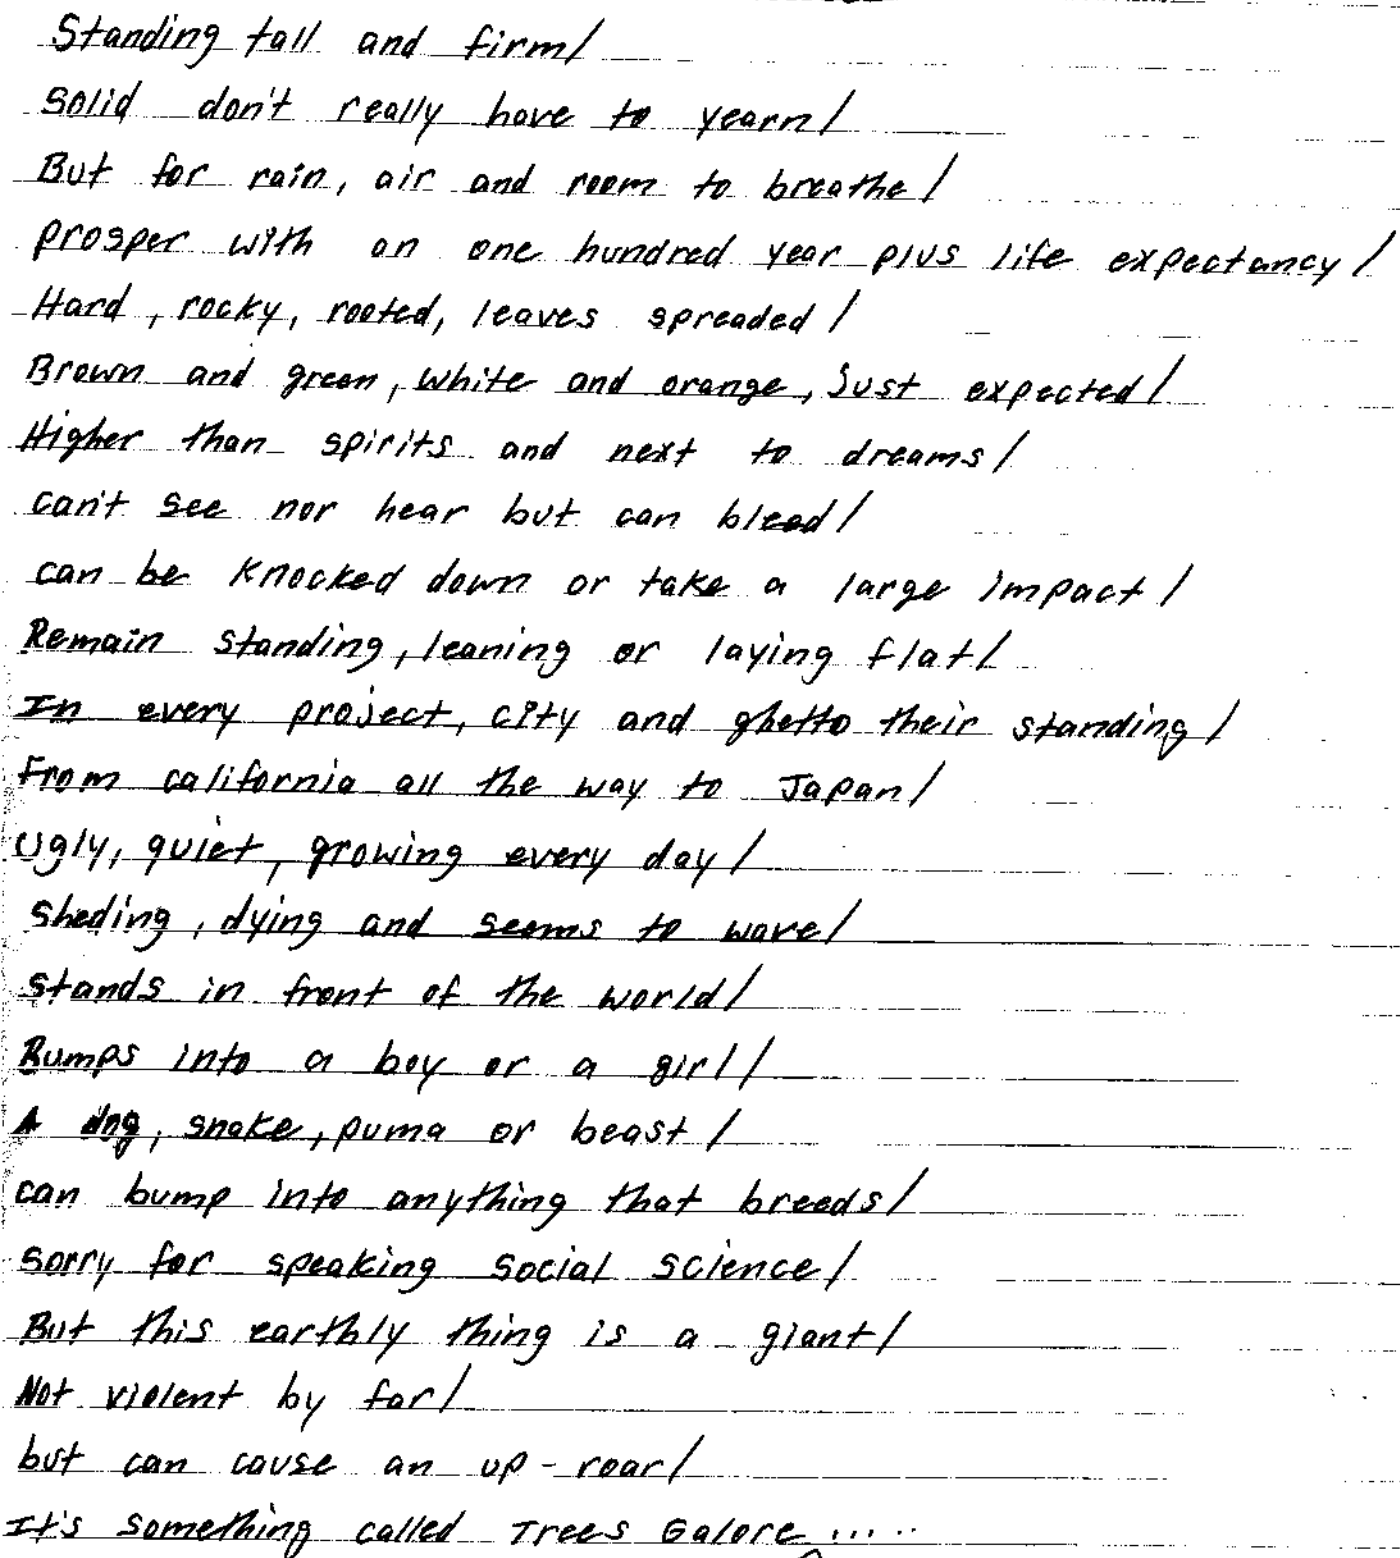 Standing tall and firm/
Solid don't really have to yearn/
But for rain, air and room to breathe/
prosper with an one hundred year plus life expectancy/
Hard, rocky, rooted, leaves spreaded/
Brown and green, white and orange, just expected/
Higher than spirits and next to dreams/
can't see nor hear but can bleed/
can be knocked down or take a large impact/
Remain standing, leaning or laying flat/
In every project, city and ghetto their standing/
From california all the way to Japan/
Ugly, quiet, growing every day/
Sheding, dying and seems to wave/
stands in front of the world/
Bumps into a boy or a girl/
A dog, snake, puma or beast/
can bump into anything that breeds/
Sorry for speaking social science/
But this earthly thing is a giant/
Not violent by far/
but can cause an up-roar/
It's something called Trees Galore.....